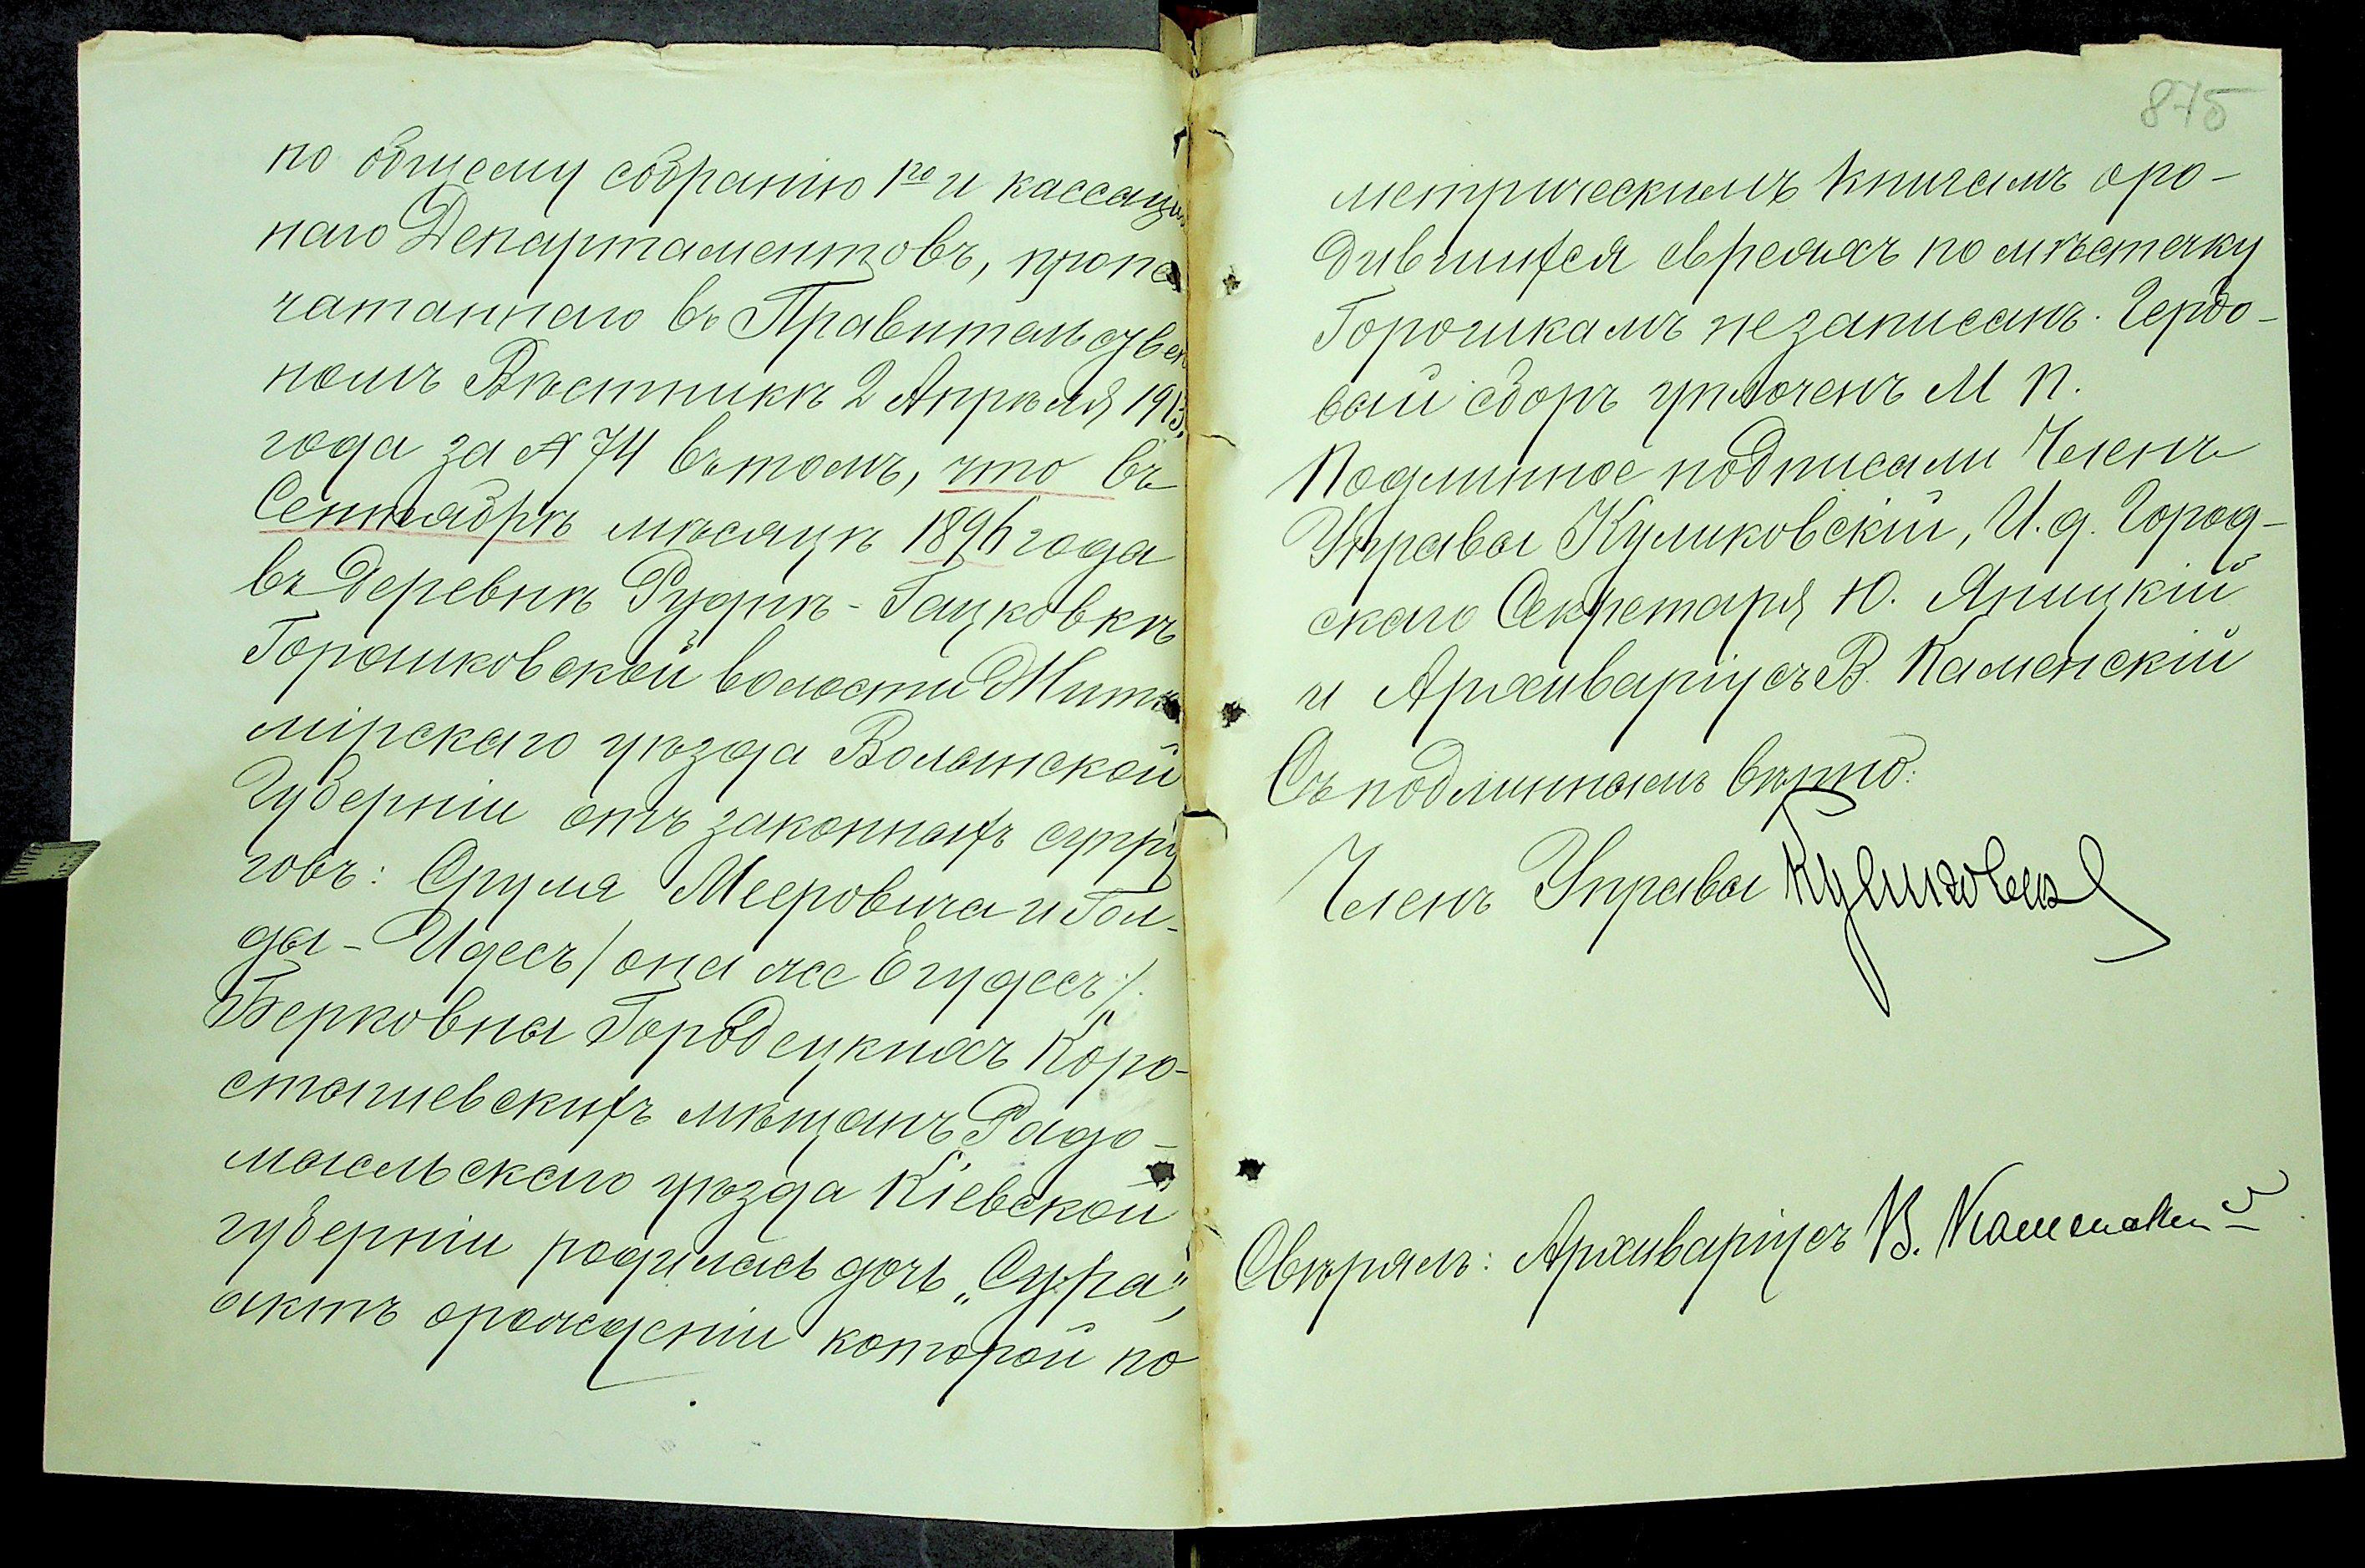 по общему собранію 1го и кассаціон
наго Департаментовъ, пропе
чатаннаго въ Правительствен
номъ Вѣстникѣ 2 Апрѣля 1913,
года за № 74 въ томъ, что въ
Сентябрѣ мѣсяцѣ 1896 года
въ деревнѣ Рудни-Гацковкѣ
Горошковской волости Жито
мірскаго уѣзда Волынской
Губерніи отъ законныхъ супру
говъ: Сруля Мееровича и Гол-
ды-Идесъ /она же Егудесъ/
Берковны Городецкихъ Коро-
стышевскихъ мѣщанъ Радо-
мысльскаго уѣзда Кіевской
губерніи родилась дочь „Сура",
актъ о рожденіи которой по
875
метрическимъ книгамъ о ро-
дившихся евреяхъ по мѣстечку
Горошкамъ не записанъ. Гербо-
вый сборъ уплоченъ М П.
Подлинное подписали Членъ
Управы Куликовскій, И. д. Город-
ского Секретаря Ю. Яницкій
и Архиваріусъ В. Каменскій
Съ подлиннымъ вѣрно:
Членъ Управы Куликовск
Свѣрялъ: Архиваріусъ В. Каменскій